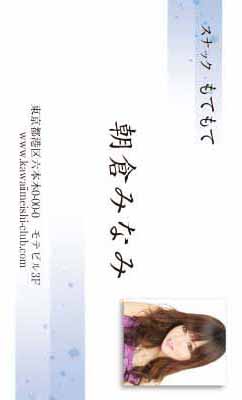 スナック もてもて
朝倉みなみ
東京都港区六本木0-00-0 モテビル3F
www.kawaimeishi-club.com